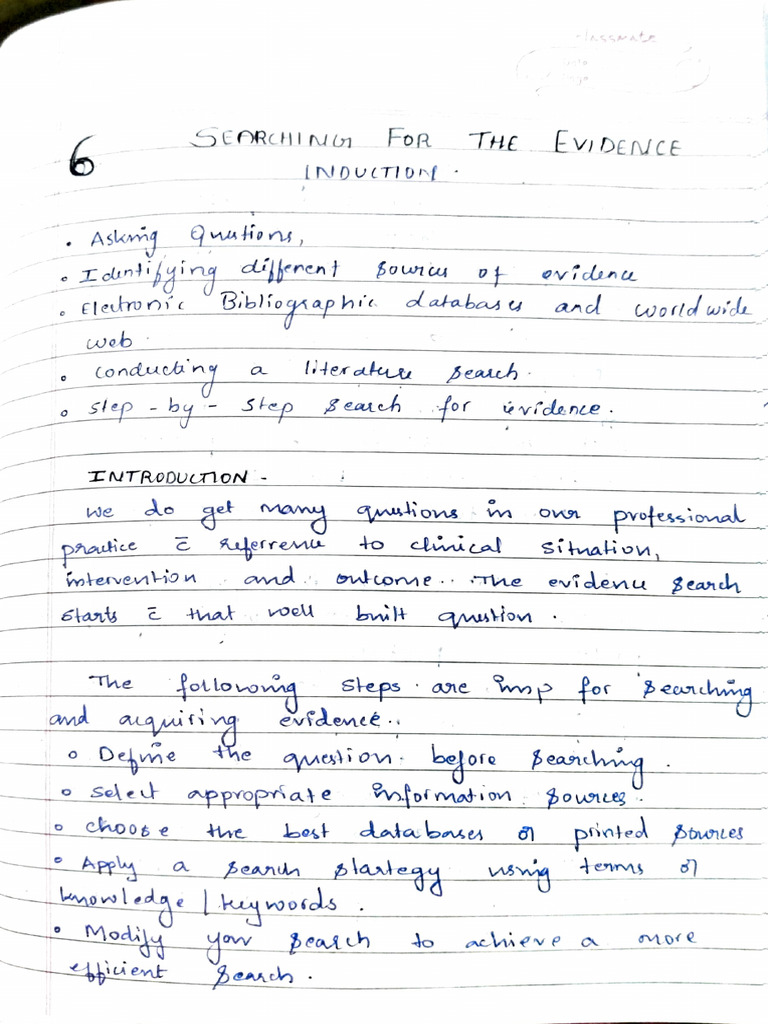 classmate
6 SEARCHING FOR THE EVIDENCE
INDUCTION.
• Asking Questions,
• Identifying different sources of evidence
• Electronic Bibliographic databases and worldwide
web.
• conducting a literature search.
• step-by-step search for evidence.
INTRODUCTION -
We do get many questions in our professional
practice c̄ referrence to clinical situation,
intervention and outcome.. The evidence search
starts c̄ that well built question.
The following steps are imp for searching
and acquiring evidence..
• Define the question before searching.
• select appropriate information sources.
• choose the best databases or printed sources
• Apply a search startegy using terms or
knowledge / keywords.
• Modify your search to achieve a more
efficient search.